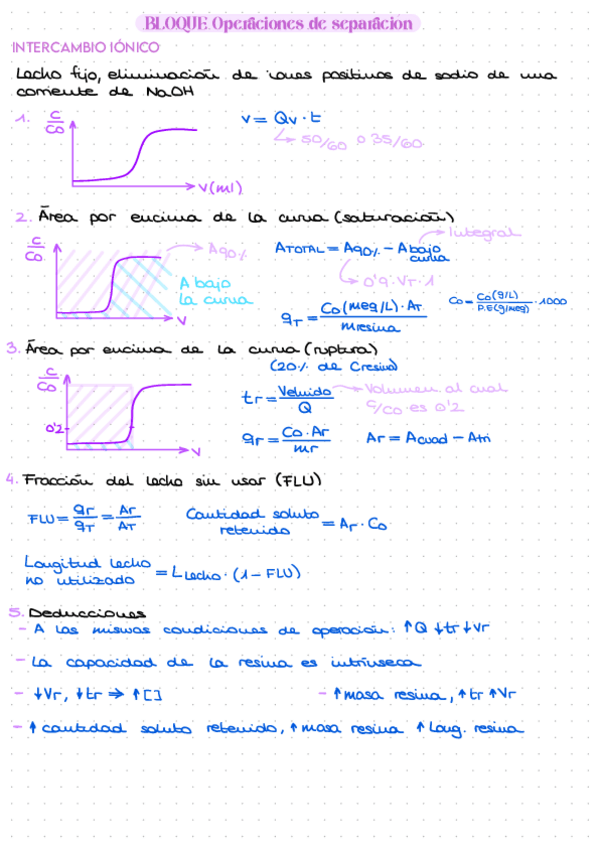 BLOQUE. Operaciones de separación
INTERCAMBIO IÓNICO
Lecho fijo, eliminación de iones positivos de sodio de una
corriente de NaOH
1. C/Co
V = Qv · t
↳ 50/60 o 35/60
V(ml)
2. Área por encima de la curva (saturación)
C/Co
→ A90%
A bajo
la curva
V
ATOTAL = A90% - Abajo curva → Integral
↳ 0'9 · VT · 1
qT = Co (meq/L) · AT / mresina
Co = Co (g/L) / P.E (g/meq) · 1000
3. Área por encima de la curva (ruptura)
(20% de Cresina)
C/Co
0'2
V
tr = Veluido / Q → Volumen al cual
C/Co es 0'2
qr = Co · Ar / mr
Ar = Acuad - Atri
4. Fracción del lecho sin usar (FLU)
FLU = qr/qT = Ar/AT
Cantidad soluto retenido = Ar · Co
Longitud lecho no utilizado = Llecho · (1 - FLU)
5. Deducciones
- A las mismas condiciones de operación: ↑Q ↓tr ↓Vr
- La capacidad de la resina es intrínseca
- ↓Vr, ↓tr ⇒ ↑[]
- ↑masa resina, ↑tr ↑Vr
- ↑ cantidad soluto retenido, ↑ masa resina ↑ Long. resina